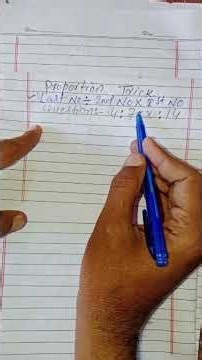 Proportion Trick
Last No ÷ 2nd No X 1st No
Question- 4:7::x:14